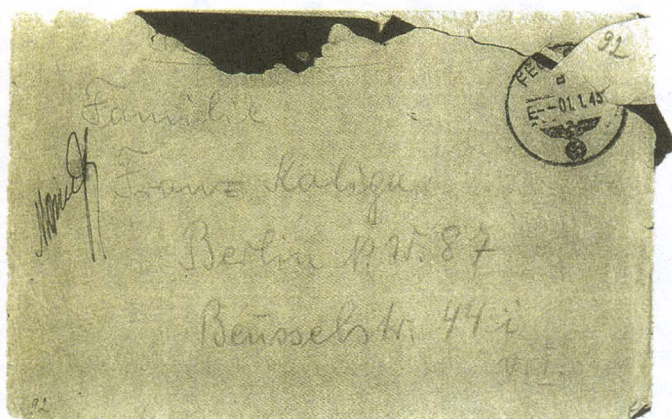 92
FE
a
--01.1.45
Familie
Franz Kaliga
Berlin N.W. 87
Beusselstr. 44 i
v. I.
92